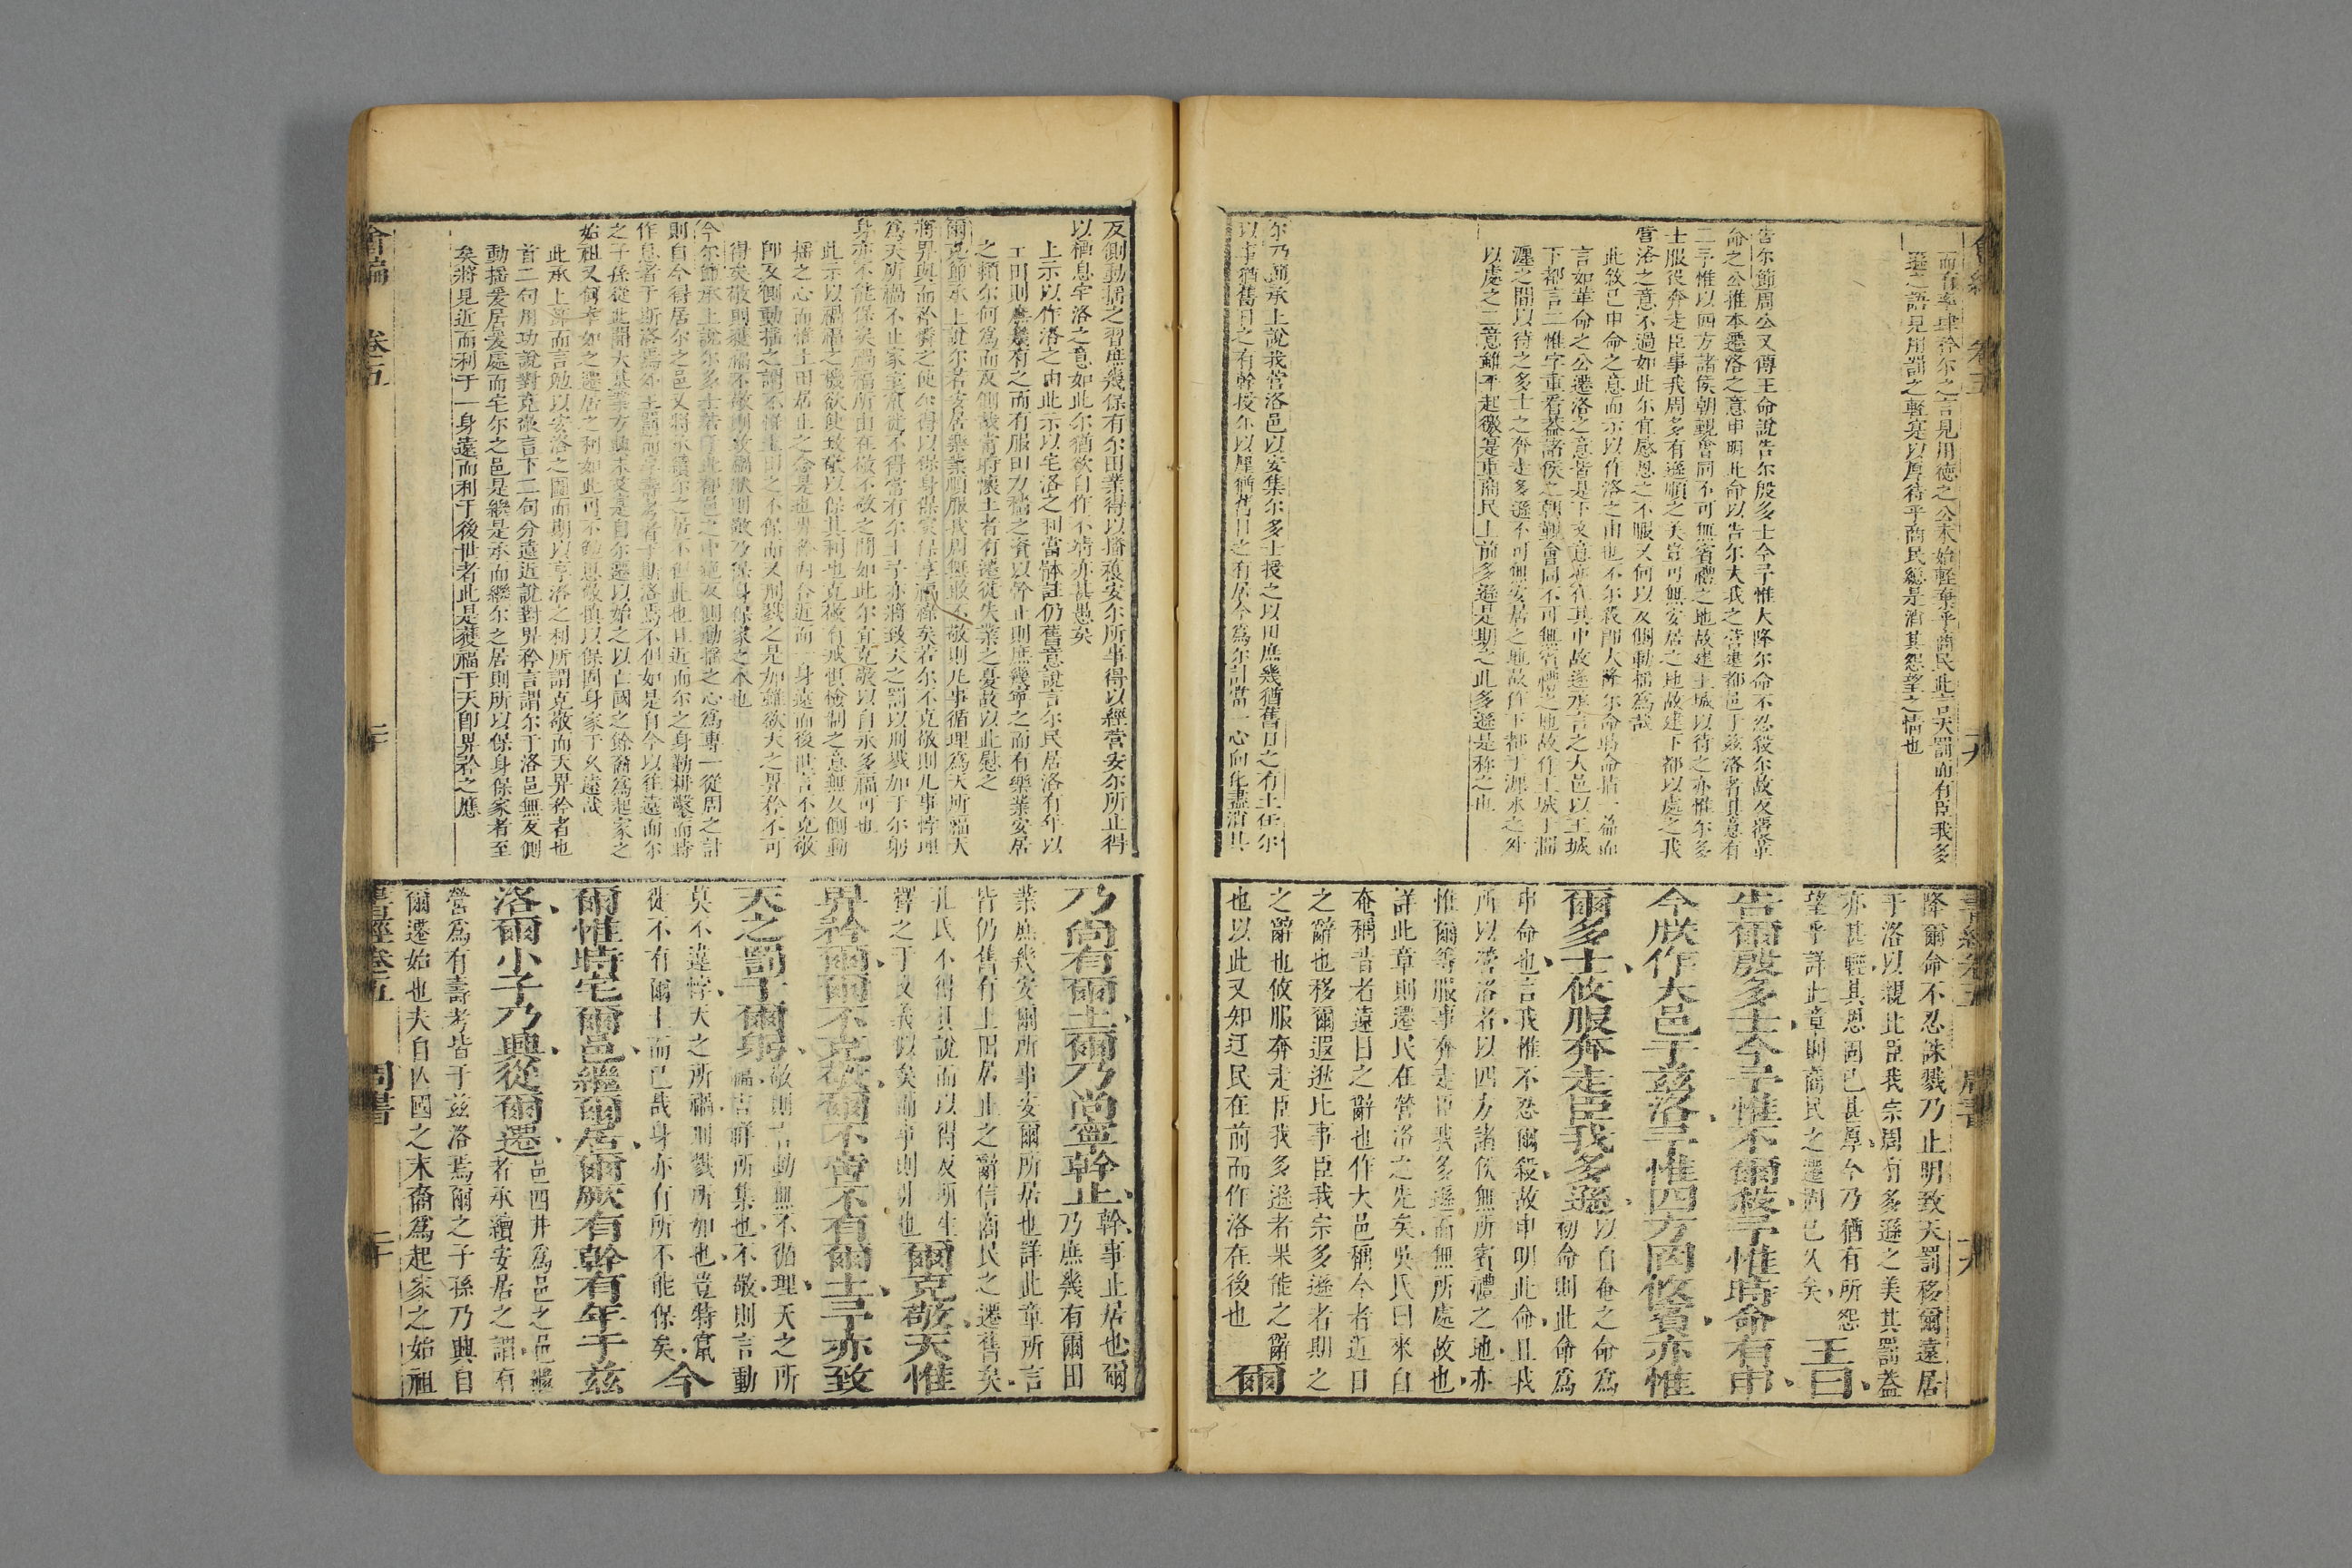 而有率肆矜尔之言見用德之公未始輕棄乎商民此言天罰而有臣我多
遜之語見用罰之輕寔以厚待乎商民總是消其怨望之情也
告尔節周公又傳王命說告尔殷多士今予惟大降尔命不忍殺尔故友遷革
命之公推本遷洛之意申明此命以告尔夫我之營建都邑于玆洛者其意有
二予惟以四方諸侯朝覲會同不可無賓禮之地故建王城以待之亦惟尔多
士服役奔走臣事我周多有遜順之美豈可無安居之地故建下都以處之我
營洛之意不過如此尔宜感恩之不暇又何以反側動搖爲哉
此敘已申命之意而示以作洛之由也不尔殺即大降尔命時命居一篇而
言如革命之公遷洛之意皆是下文意都在其中故遂承言之大邑以王城
下都言二惟字重看葢諸侯之朝覲會同不可無賓禮之地故作王城于澗
瀍之間以待之多士之奔走多遜不可無安居之地故作下都于瀍水之外
以處之二意雖平起微寔重商民上前多遜是期之此多遜是称之也
尔乃節承上說我營洛邑以安集尔多士授之以田庶幾猶舊日之有土任尔
以事猶舊日之有幹授尔以廛猶舊日之有居今爲尔計當一心向化盡消其
降爾命不忍誅戮乃止明致天罰移爾遠居
于洛以親比臣我宗周有多遜之美其罰葢
亦甚輕其恩固已甚厚今乃猶有所怨
望乎詳此章則商民之遷固已久矣王曰
告爾殷多士今予惟不爾殺予惟時命有申
今朕作大邑于茲洛予惟四方罔攸賓亦惟
爾多士攸服奔走臣我多遜以自奄之命爲
初命則此命爲
申命也言我惟不忍爾殺故申明此命且我
所以營洛者以四方諸侯無所賓禮之地亦
惟爾等服事奔走臣我多遜而無所處故也
詳此章則遷民在營洛之先矣吳氏曰來自
奄稱昔者遠日之辭也作大邑稱今者近日
之辭也移爾遐逖比事臣我宗多遜者期之
之辭也攸服奔走臣我多遜者果能之辭
也以此又知遷民在前而作洛在後也爾
反側動搖之習庶幾保有尔田業得以播穫安尔所事得以經營安尔所止得
以棲息宅洛之意如此尔猶欲自作不靖亦甚愚矣
上示以作洛之由此示以宅洛之利當體註仍舊意說言尔民居洛有年以
土田則庶幾有之而有服田力穡之資以幹止則庶幾寧之而有樂業安居
之類尔何爲而反側哉當時懷土者有遷徙失業之憂故以此慰之
爾克節承上說尔若安居樂業順服我周無敢不敬則凡事循理爲天所福天
將畀與而矜憐之使尔得以保身保家保享福祿矣若尔不克敬則凡事悖理
爲天所禍不止家室竄徙不得常有尔土予亦將致天之罰以刑戮加于尔躬
身亦不能保矣禍福所由在敬不敬之間如此尔宜克敬以自求多福可也
此示以禍福之機欲使致敬以保其利也克敬有戒懼檢制之意無反側動
搖之心而惟土田居止之念是也畀矜內合近而一身遠而後世言不克敬
即反側動搖之謂不惟土田之不保而又刑戮之是加雖欲天之畀矜不可
得矣敬則獲福不敬則致禍然則敬乃保身保家之本也
今尔節承上說尔多士若惟此都邑之中絶反側動搖之心爲專一從周之計
則自今得居尔之邑又將承續尔之居不但此也且近而尔之身勤耕鑿而時
作息者于斯洛焉外王罰而享壽考者于斯洛焉不但如是自今以往遠而尔
之子孫從此開大基業方興未艾是自尔遷以始之以亡國之餘裔爲起家之
始祖又何幸如之遷居之利如此可不勉思敬慎以保固身家于久遠哉
此承上節而言勉以安洛之圖而期以享洛之利所謂克敬而天畀矜者也
首二句用功說對克敬言下二句分遠近說對畀矜言謂尔于洛邑無反側
動搖爰居爰處而宅尔之邑是繼是承而繼尔之居則所以保身保家者至
矣將見近而利于一身遠而利于後世者此是獲福于天即畀矜之應
乃尚有爾土爾乃尚寧幹止幹事止居也爾
乃庶幾有爾田
業庶幾安爾所事安爾所居也詳此章所言
皆仍舊有土田居止之辭信商民之遷舊矣
孔氏不得其說而以得反所生
釋之于文義似矣而事則非也爾克敬天惟
畀矜爾爾不克敬爾不啻不有爾土予亦致
天之罰于爾躬敬則言動無不循理天之所
福吉祥所集也不敬則言動
莫不違悖天之所禍刑戮所加也豈特竄
徙不有爾土而已哉身亦有所不能保矣今
爾惟時宅爾邑繼爾居爾厥有幹有年于茲
洛爾小子乃興從爾遷邑四井爲邑之邑繼
者承續安居之謂有
營爲有壽考皆于茲洛焉爾之子孫乃興自
爾遷始也夫自亾國之末裔爲起家之始祖
會編 卷五 二十
書經卷五 周書 二十